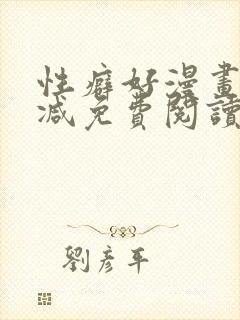 性癖好漫畫
減免費閱讀
劉彥平